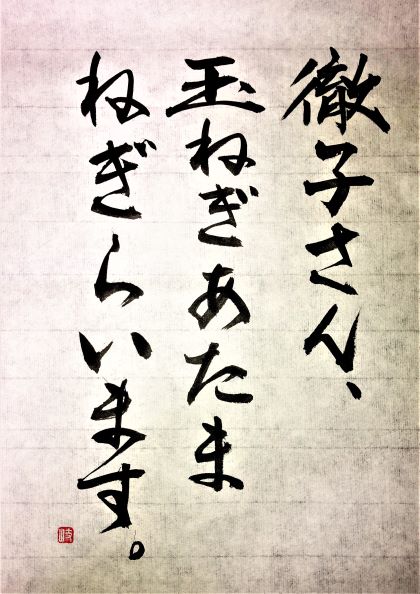 徹子さん、
玉ねぎあたま
ねぎらいます。